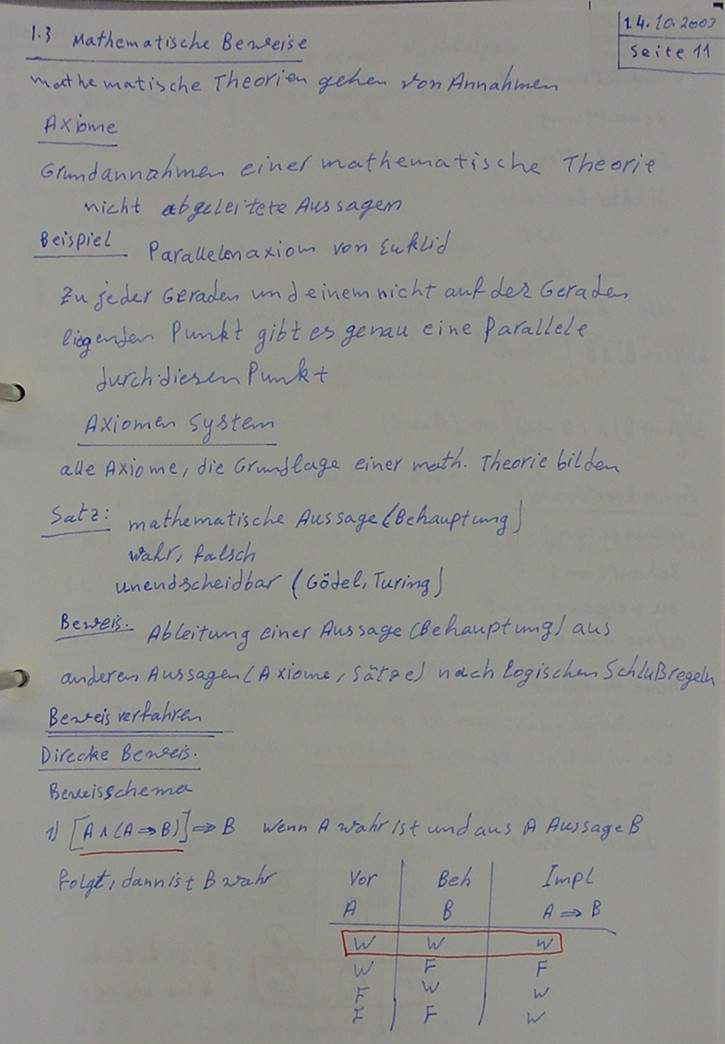 14.10.2003
Seite 11
1.3 Mathematische Beweise
mathematische Theorien gehen von Annahmen
Axiome
Grundannahmen einer mathematische Theorie
nicht abgeleitete Aussagen
Beispiel Parallelenaxiom von Euklid
Zu jeder Geraden und einem nicht auf der Geraden
liegenden Punkt gibt es genau eine Parallele
durch diesen Punkt
Axiomen System
alle Axiome, die Grundlage einer math. Theorie bilden
Satz: mathematische Aussage (Behauptung)
wahr, falsch
unendscheidbar (Gödel, Turing)
Beweis. Ableitung einer Aussage (Behauptung) aus
anderen Aussagen (Axiome, Sätze) nach logischen Schlußregeln
Beweisverfahren
Direcke Beweis.
Beweisschema
1) [A ∧ (A ⇒ B)] ⇒ B wenn A wahr ist und aus A Aussage B
folgt, dann ist B wahr
Vor Beh Impl
A B A ⇒ B
W W W
W F F
F W W
F F W